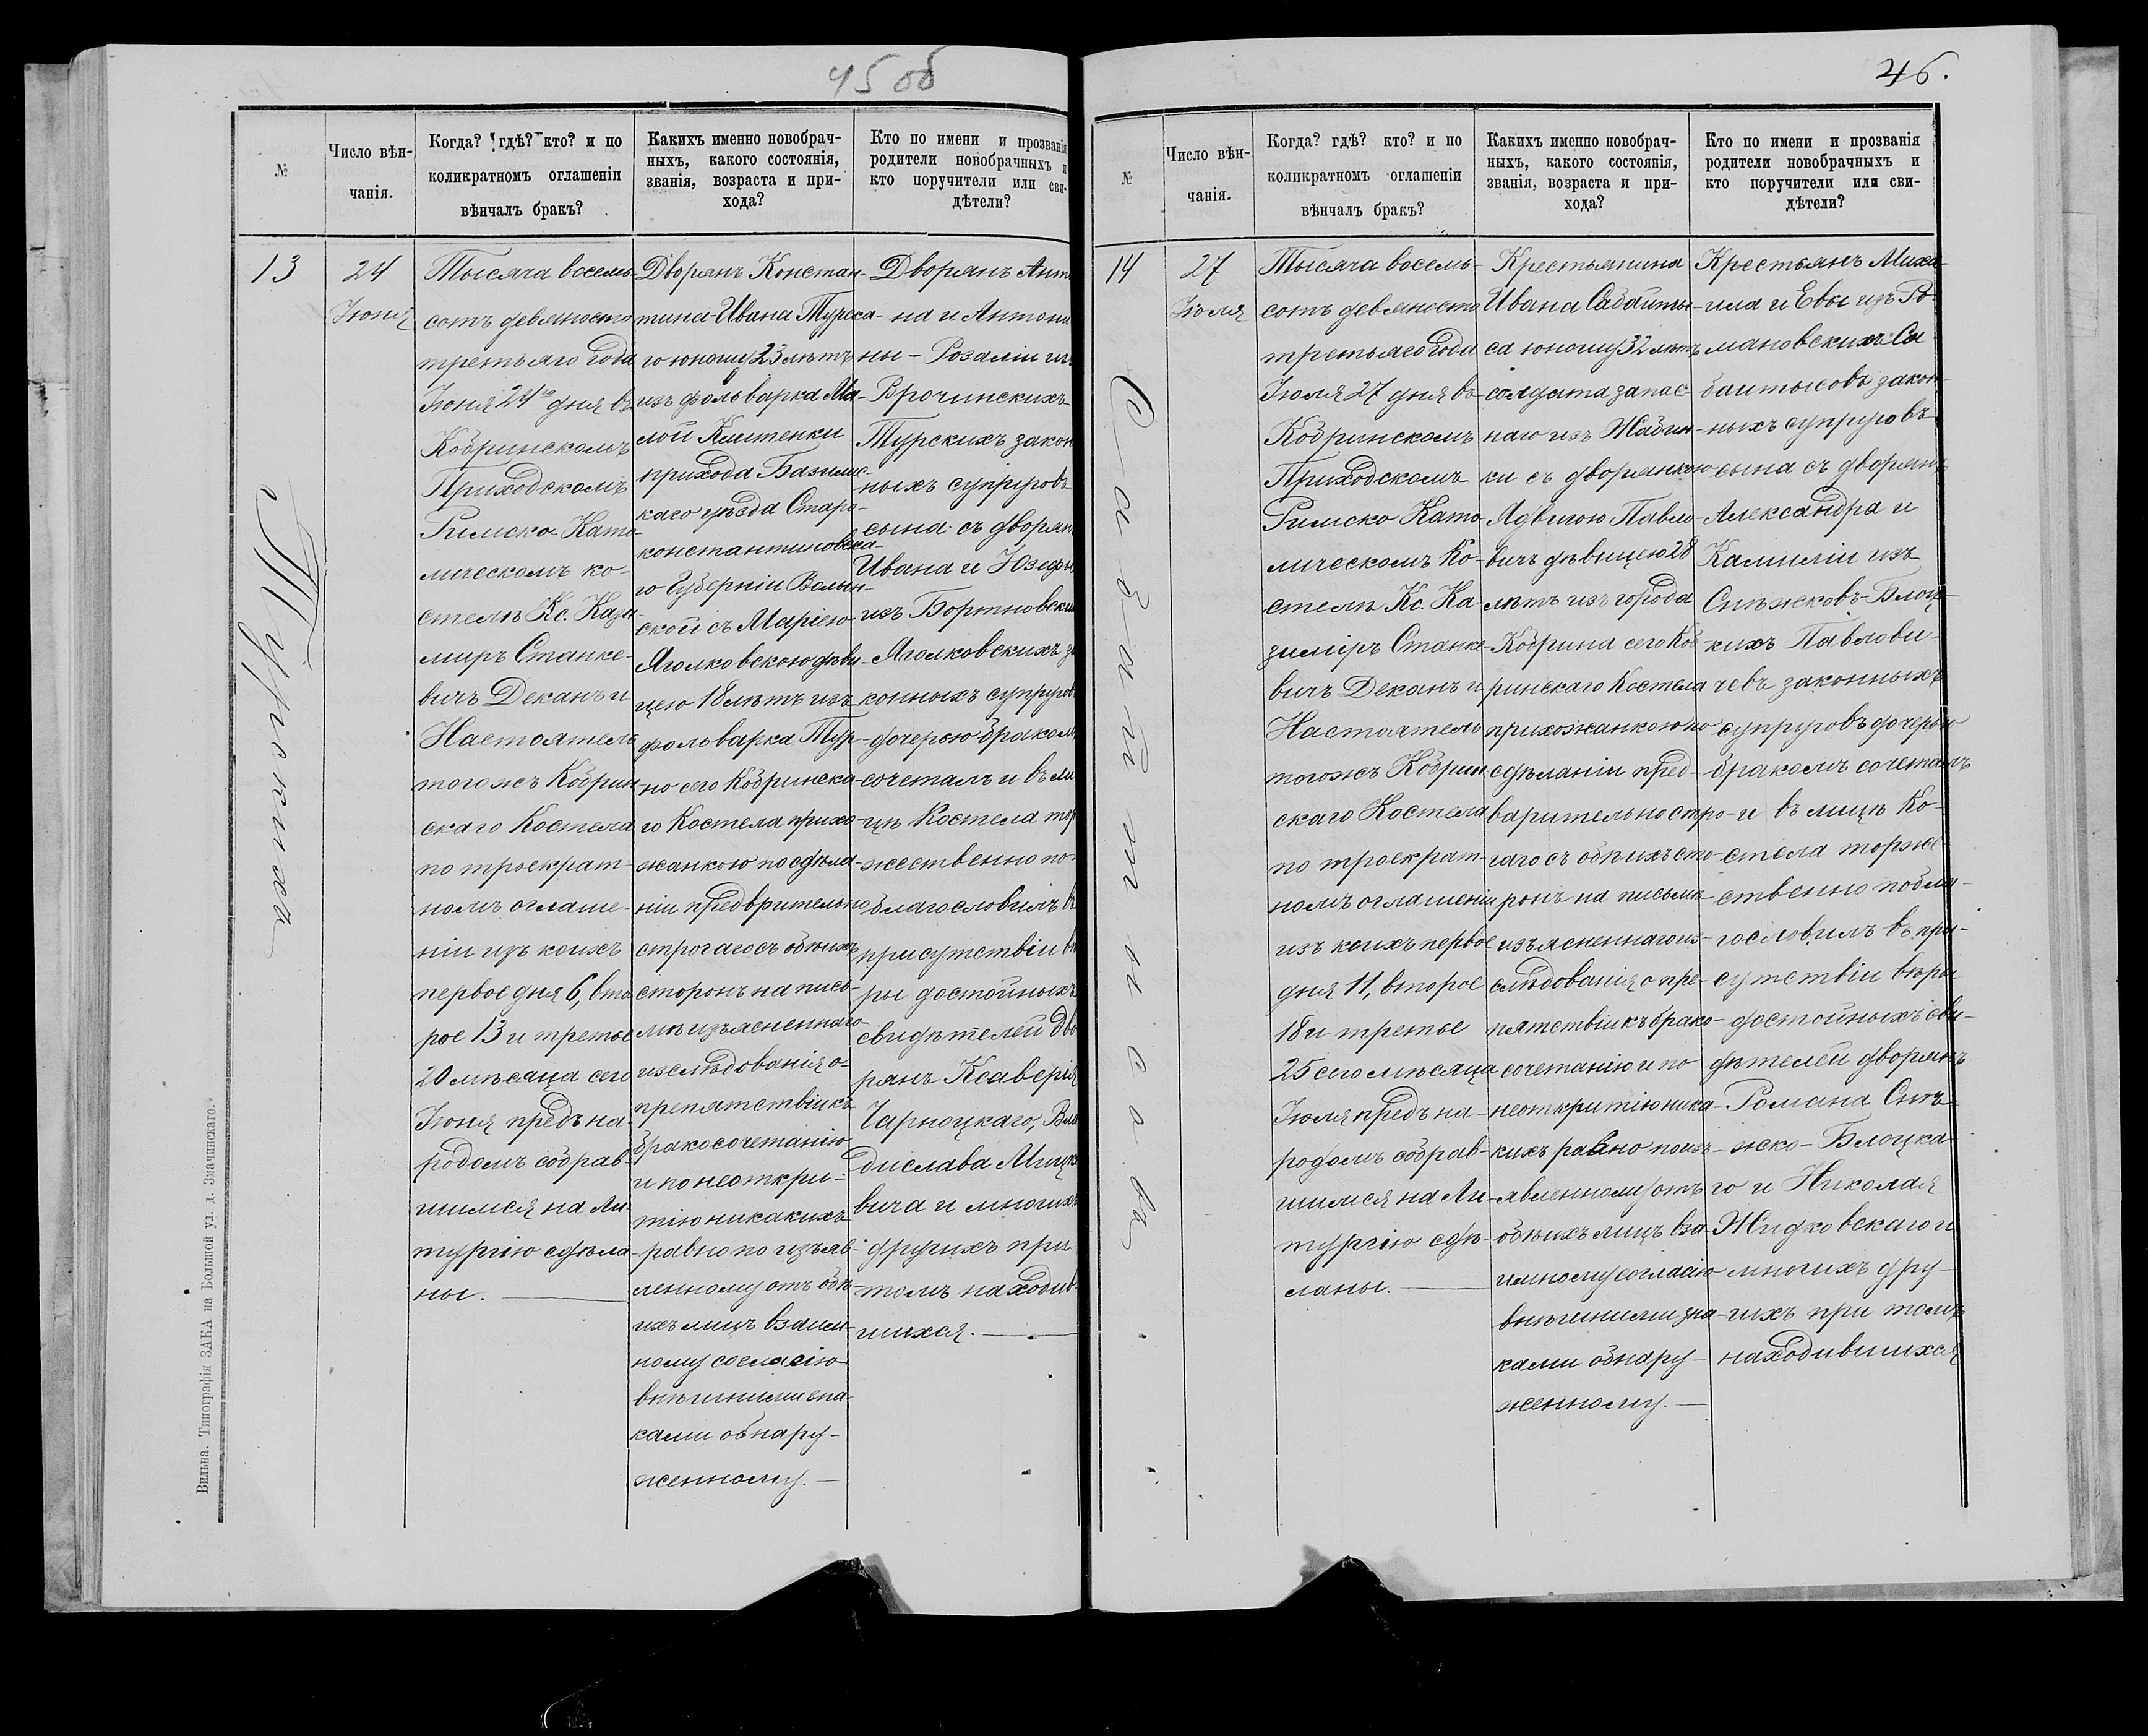 45 об
№
Число вѣн-
чанія.
Когда? гдѣ? кто? и по
коликратномъ оглашеніи
вѣнчалъ бракъ?
Какихъ именно новобрач-
ныхъ, какого состоянія,
званія, возраста и при-
хода?
Кто по имени и прозванія
родители новобрачныхъ и
кто поручители или сви-
дѣтели?
13
24
Іюня
Турскихъ
Тысяча восемь-
сотъ девяносто
третьяго года
Іюня 24го дня въ
Кобринскомъ
Приходскомъ
Римско-Като-
лическомъ ко-
стелѣ Кс. Кази-
миръ Станке-
вичъ Деканъ и
Настоятель
тогожъ Кобрин
скаго Костела
по троекрат-
номъ оглаше-
ніи изъ коихъ
первое дня 6, вто
рое 13 и третье
20 мѣсяца сего
Іюня предъ на
родомъ собрав-
шимся на Ли
тургію сдѣла
ны.
Дворянъ Констан-
тина-Ивана Турска-
го юношу 23 лѣтъ
изъ фольварка Ма-
лой Клитенки
прихода Базилис-
каго уѣзда Старо-
константиновска-
го Губерніи Волын-
ской съ Маріею
Яголковскою дѣви-
цею 18 лѣтъ изъ
фольварка Тур-
но сего Кобринска-
го Костела прихо-
жанкою по сдѣла-
ніи предврительно
строгаго съ обѣихъ
сторонъ на пись-
мѣ изъясненнаго
изслѣдованія о
препятствіи къ
бракосочетанію
и по неоткри-
тію никакихъ
равно по изъяв-
ленному отъ обѣ-
ихъ лицъ взаим-
ному согласію
внѣшними зна-
ками обнару-
женному.
Дворянъ Анто
на и Антони
ны-Розаліи изъ
Врочинскихъ
Турскихъ закон
ныхъ супруговъ
сына съ дворян
Ивана и Юзефы
изъ Бортновских
Яголковскихъ за
конныхъ супругов
дочерью бракомъ
сочеталъ и въ ли
цѣ Костела тор
жественно по-
благословилъ въ
присутствіи вѣ
ры достойныхъ
свидѣтелей Дво
рянъ Ксаверія
Чарноцкаго, Вла
дислава Мицке
вича и многихъ
другихъ при
томъ находив-
шихся.
Вильна. Типографія ЗАКА на Большой ул. д. Змачинскаго.
46.
№
Число вѣн-
чанія.
Когда? гдѣ? кто? и по
коликратномъ оглашеніи
вѣнчалъ бракъ?
Какихъ именно новобрач-
ныхъ, какого состоянія,
званія, возраста и при-
хода?
Кто по имени и прозванія
родители новобрачныхъ и
кто поручители или сви-
дѣтели?
14
27
Іюля
Тысяча восемь-
сотъ девяносто
третьяго года
Іюля 27 дня въ
Кобринскомъ
Приходскомъ
Римско Като-
лическомъ Ко-
стелѣ Кс. Ка-
зиміръ Станке-
вичъ Деканъ и
Настоятель
тогожъ Кобрин
скаго Костела
по троекрат-
номъ оглашеніи
изъ коихъ первое
дня 11, второе
18 и третье
25 сего мѣсяца
Іюля предъ на-
родомъ собрав-
шимся на Ли-
тургію сдѣ-
ланы.
Крестьянина
Ивана Сабайты-
са юношу 32 лѣтъ
солдата запас-
наго изъ Жабин-
ки съ дворянкою
Ядвигою Павло-
вичъ дѣвицею 28
лѣтъ изъ города
Кобрина сего Коб
ринскаго Костела
прихожанкою по
сдѣланіи пред-
варительно стро-
гаго съ обѣихъ сто-
ронъ на письмѣ
изъясненнаго из-
слѣдованія о пре-
пятствіи къ брако-
сочетанію и по
неоткритію ника-
кихъ равно по изъ-
явленному отъ
обѣихъ лицъ вза-
имному согласію
внѣшними зна-
ками обнару-
женному.
Крестьянъ Миха-
ила и Евы изъ Ро-
мановскихъ Са-
баитысовъ закон-
ныхъ супруговъ
сына съ дворянъ
Александра и
Камиліи изъ
Снѣжсковъ-Блоц-
кихъ Павлови-
чевъ законныхъ
супруговъ дочерью
бракомъ сочеталъ
и въ лицѣ Ко-
стела торже-
ственно побла-
гословилъ въ при-
сутствіи вѣры
достойныхъ сви-
дѣтелей дворянъ
Романа Снѣ-
жско-Блоцка-
го и Николая
Жидковскаго и
многихъ дру-
гихъ при томъ
находившихся